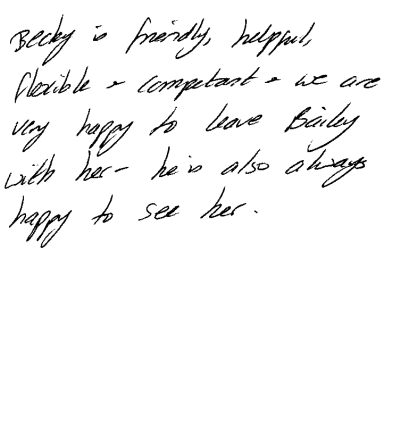 Becky is friendly, helpful,
flexible + competant + we are
very happy to leave Bailey
with her - he is also always
happy to see her.